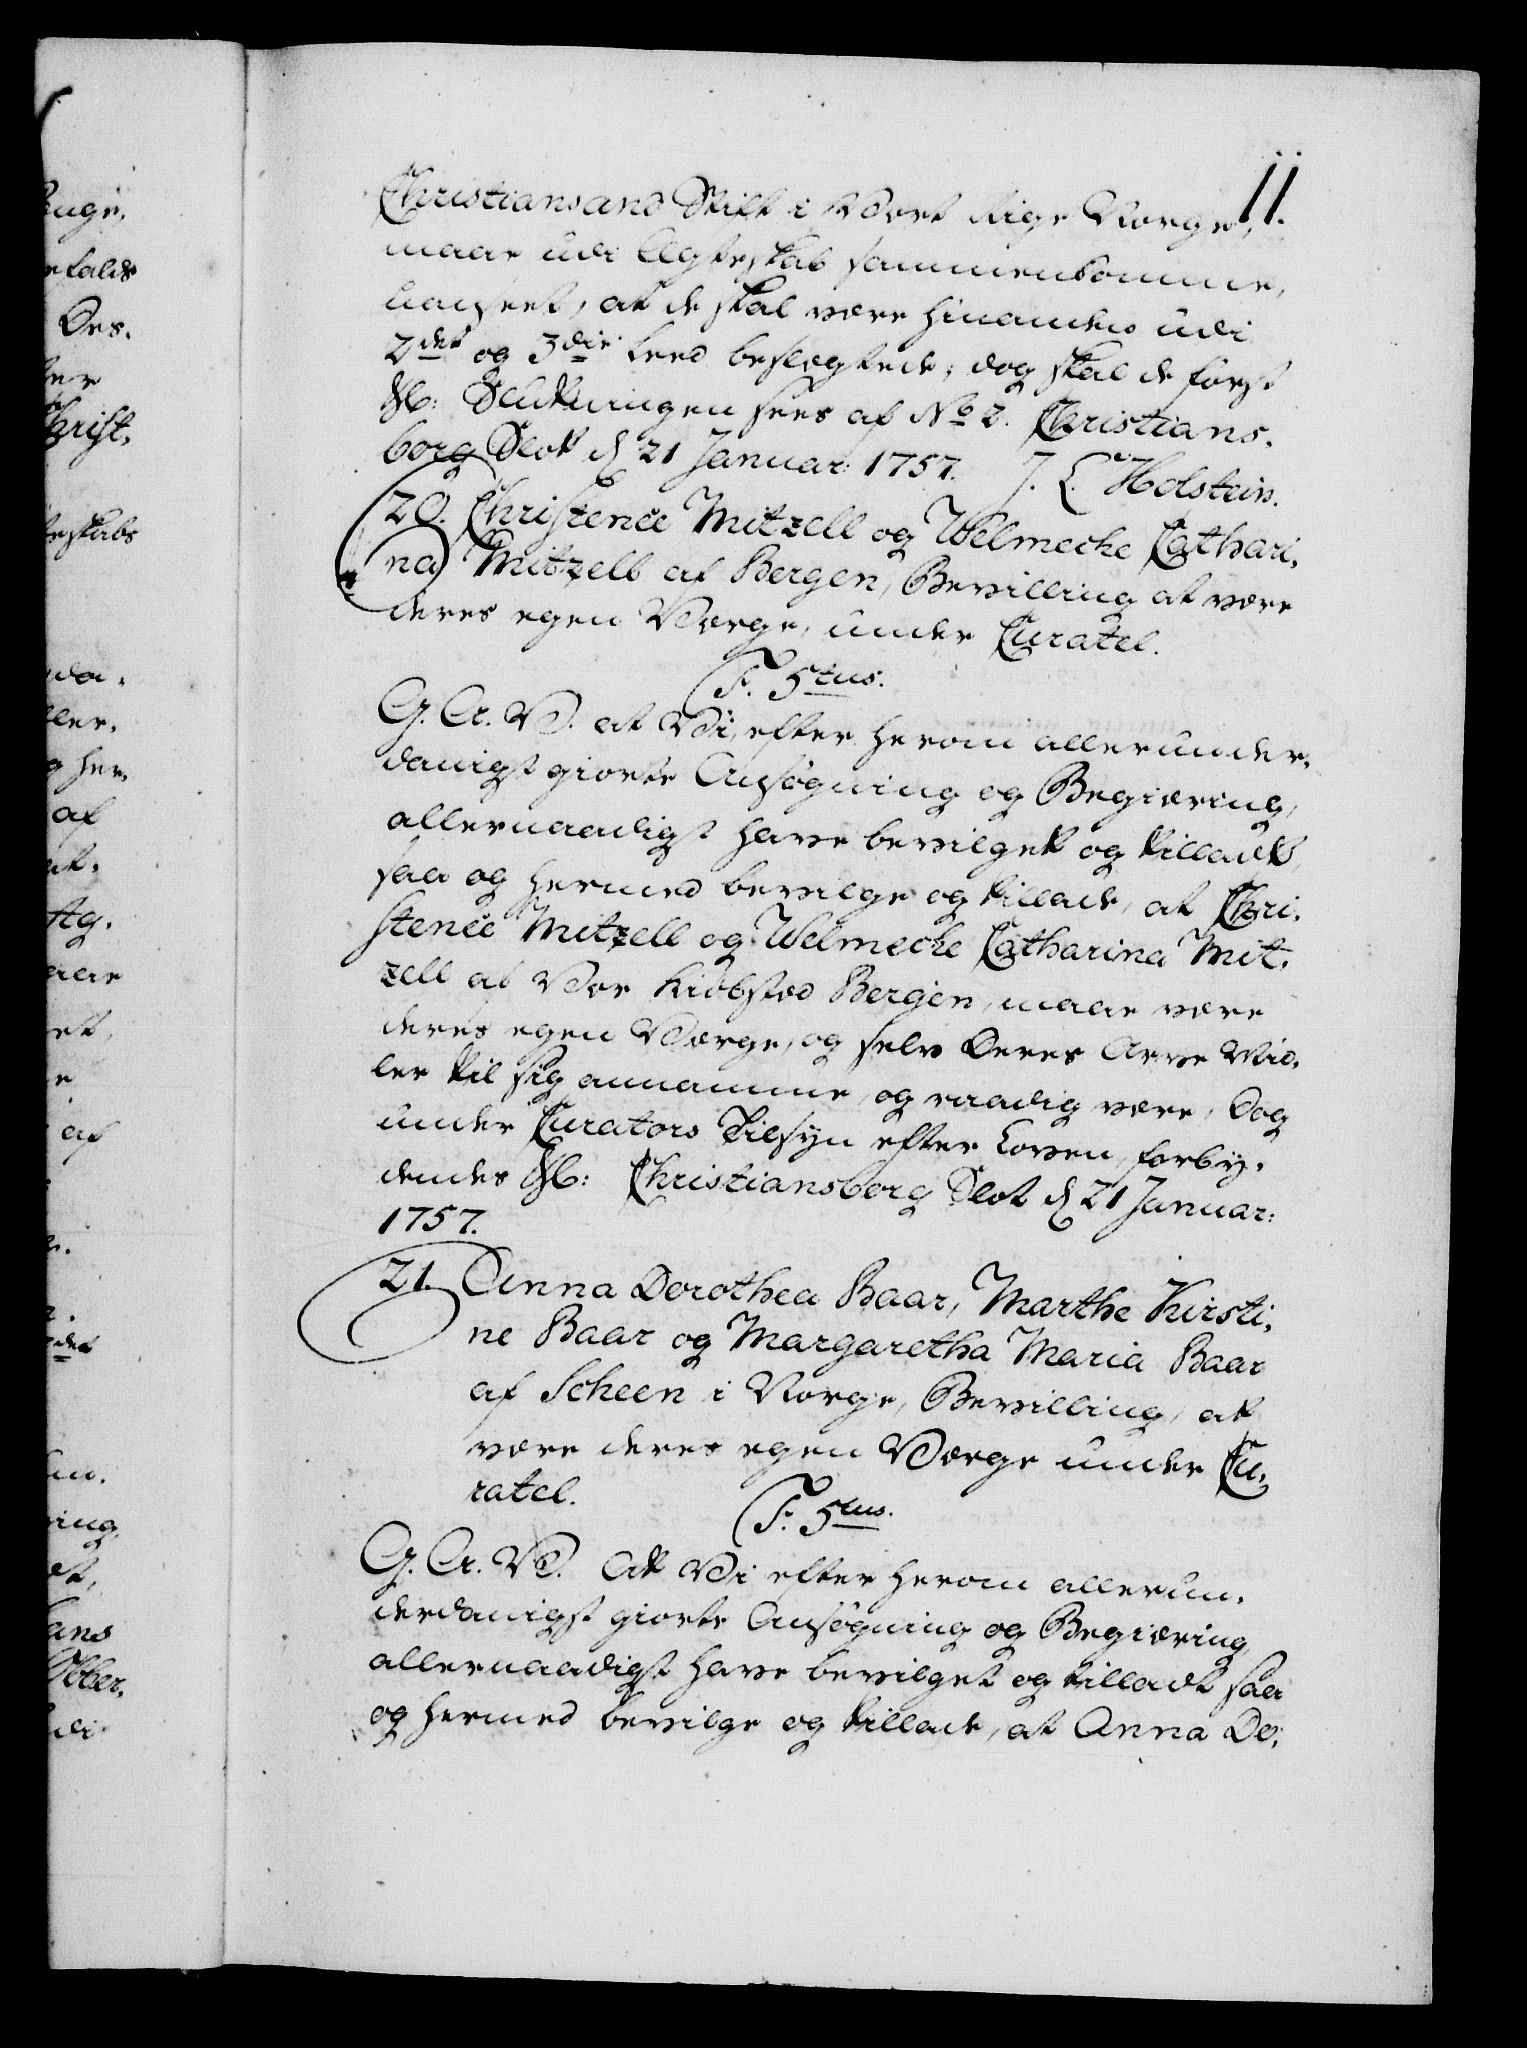 11.
Christiansand Stift i Vort Rige Norge,
maae udi Egteskab sammenkomme,
uanseet, at de skal være hinanden udi
2det og 3die Leed beslegtede; dog skal de først
&c: Slutningen sees af No 2. Christians-
borg Slot d 21 Januar: 1757. J. L. Holstein.
20. Christence Mitzell og Welmecke Cathari-
na Mitzell af Bergen, Bevilling at være
deres egen Værge, under Curatel.
F. 5tus.
G. A. V. at Vi, efter herom allerunder-
danigst giorte Ansøgning og Begiæring,
allernaadigst have bevilget og tilladt,
saa og hermed bevilge og tillade, at Chri-
stence Mitzell og Welmecke Catharina Mit-
zell af Vor Kiøbsted Bergen, maae være
deres egen Værge, og selv Deres Arve Mid-
ler til sig annamme og raadig være, Dog
under Curators Tilsyn efter Loven, forby-
dendes &c: Christiansborg Slot d 21 Januar:
1757.
21. Anna Dorothea Baar, Marthe Kirsti-
ne Baar og Margaretha Maria Baar
af Scheen i Norge, Bevilling, at
være deres egen Værge under Cu-
ratel.
F. 5tus.
G. A. V. At Vi efter herom allerun-
derdanigst giorte Ansøgning og Begiæring,
allernaadigst have bevilget og tilladt saa
og hermed bevilge og tillade, at Anna Do-